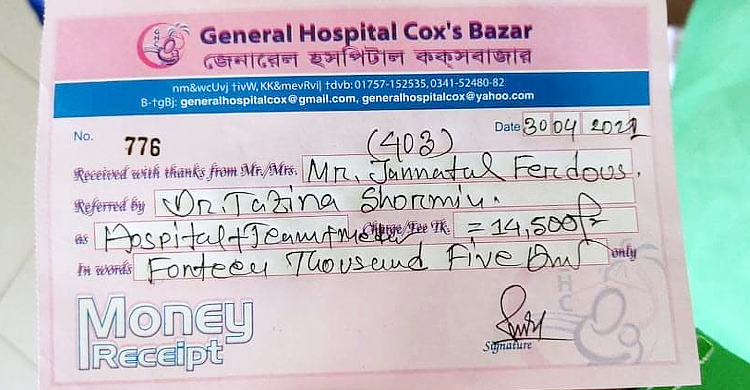 General Hospital Cox's Bazar
জেনারেল হসপিটাল কক্সবাজার
nm&wcUvj †ivW, KK&mevRvi| †dvb: 01757-152535, 0341-52480-82
B-†gBj: generalhospitalcox@gmail.com, generalhospitalcox@yahoo.com
No. 776 (403) Date 30 04 2022
Received with thanks from Mr./Mrs. Mr. Jannatul Ferdous.
Referred by Dr. Tazina Shormin.
as Hospital+Team+ Charge/Fee TK. = 14,500/=
In words Forteen Thousand Five only
Money
Receipt
Signature